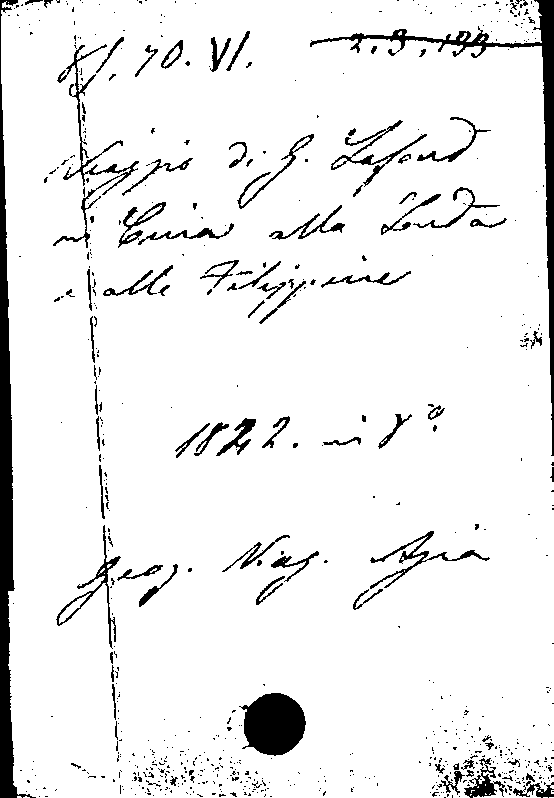 70. VI. 2.3.193
Viaggio di G. Lafond
in Cina alla Sonda
e alle Filippine
1842. in 8°.
Geog. Viag. Asia